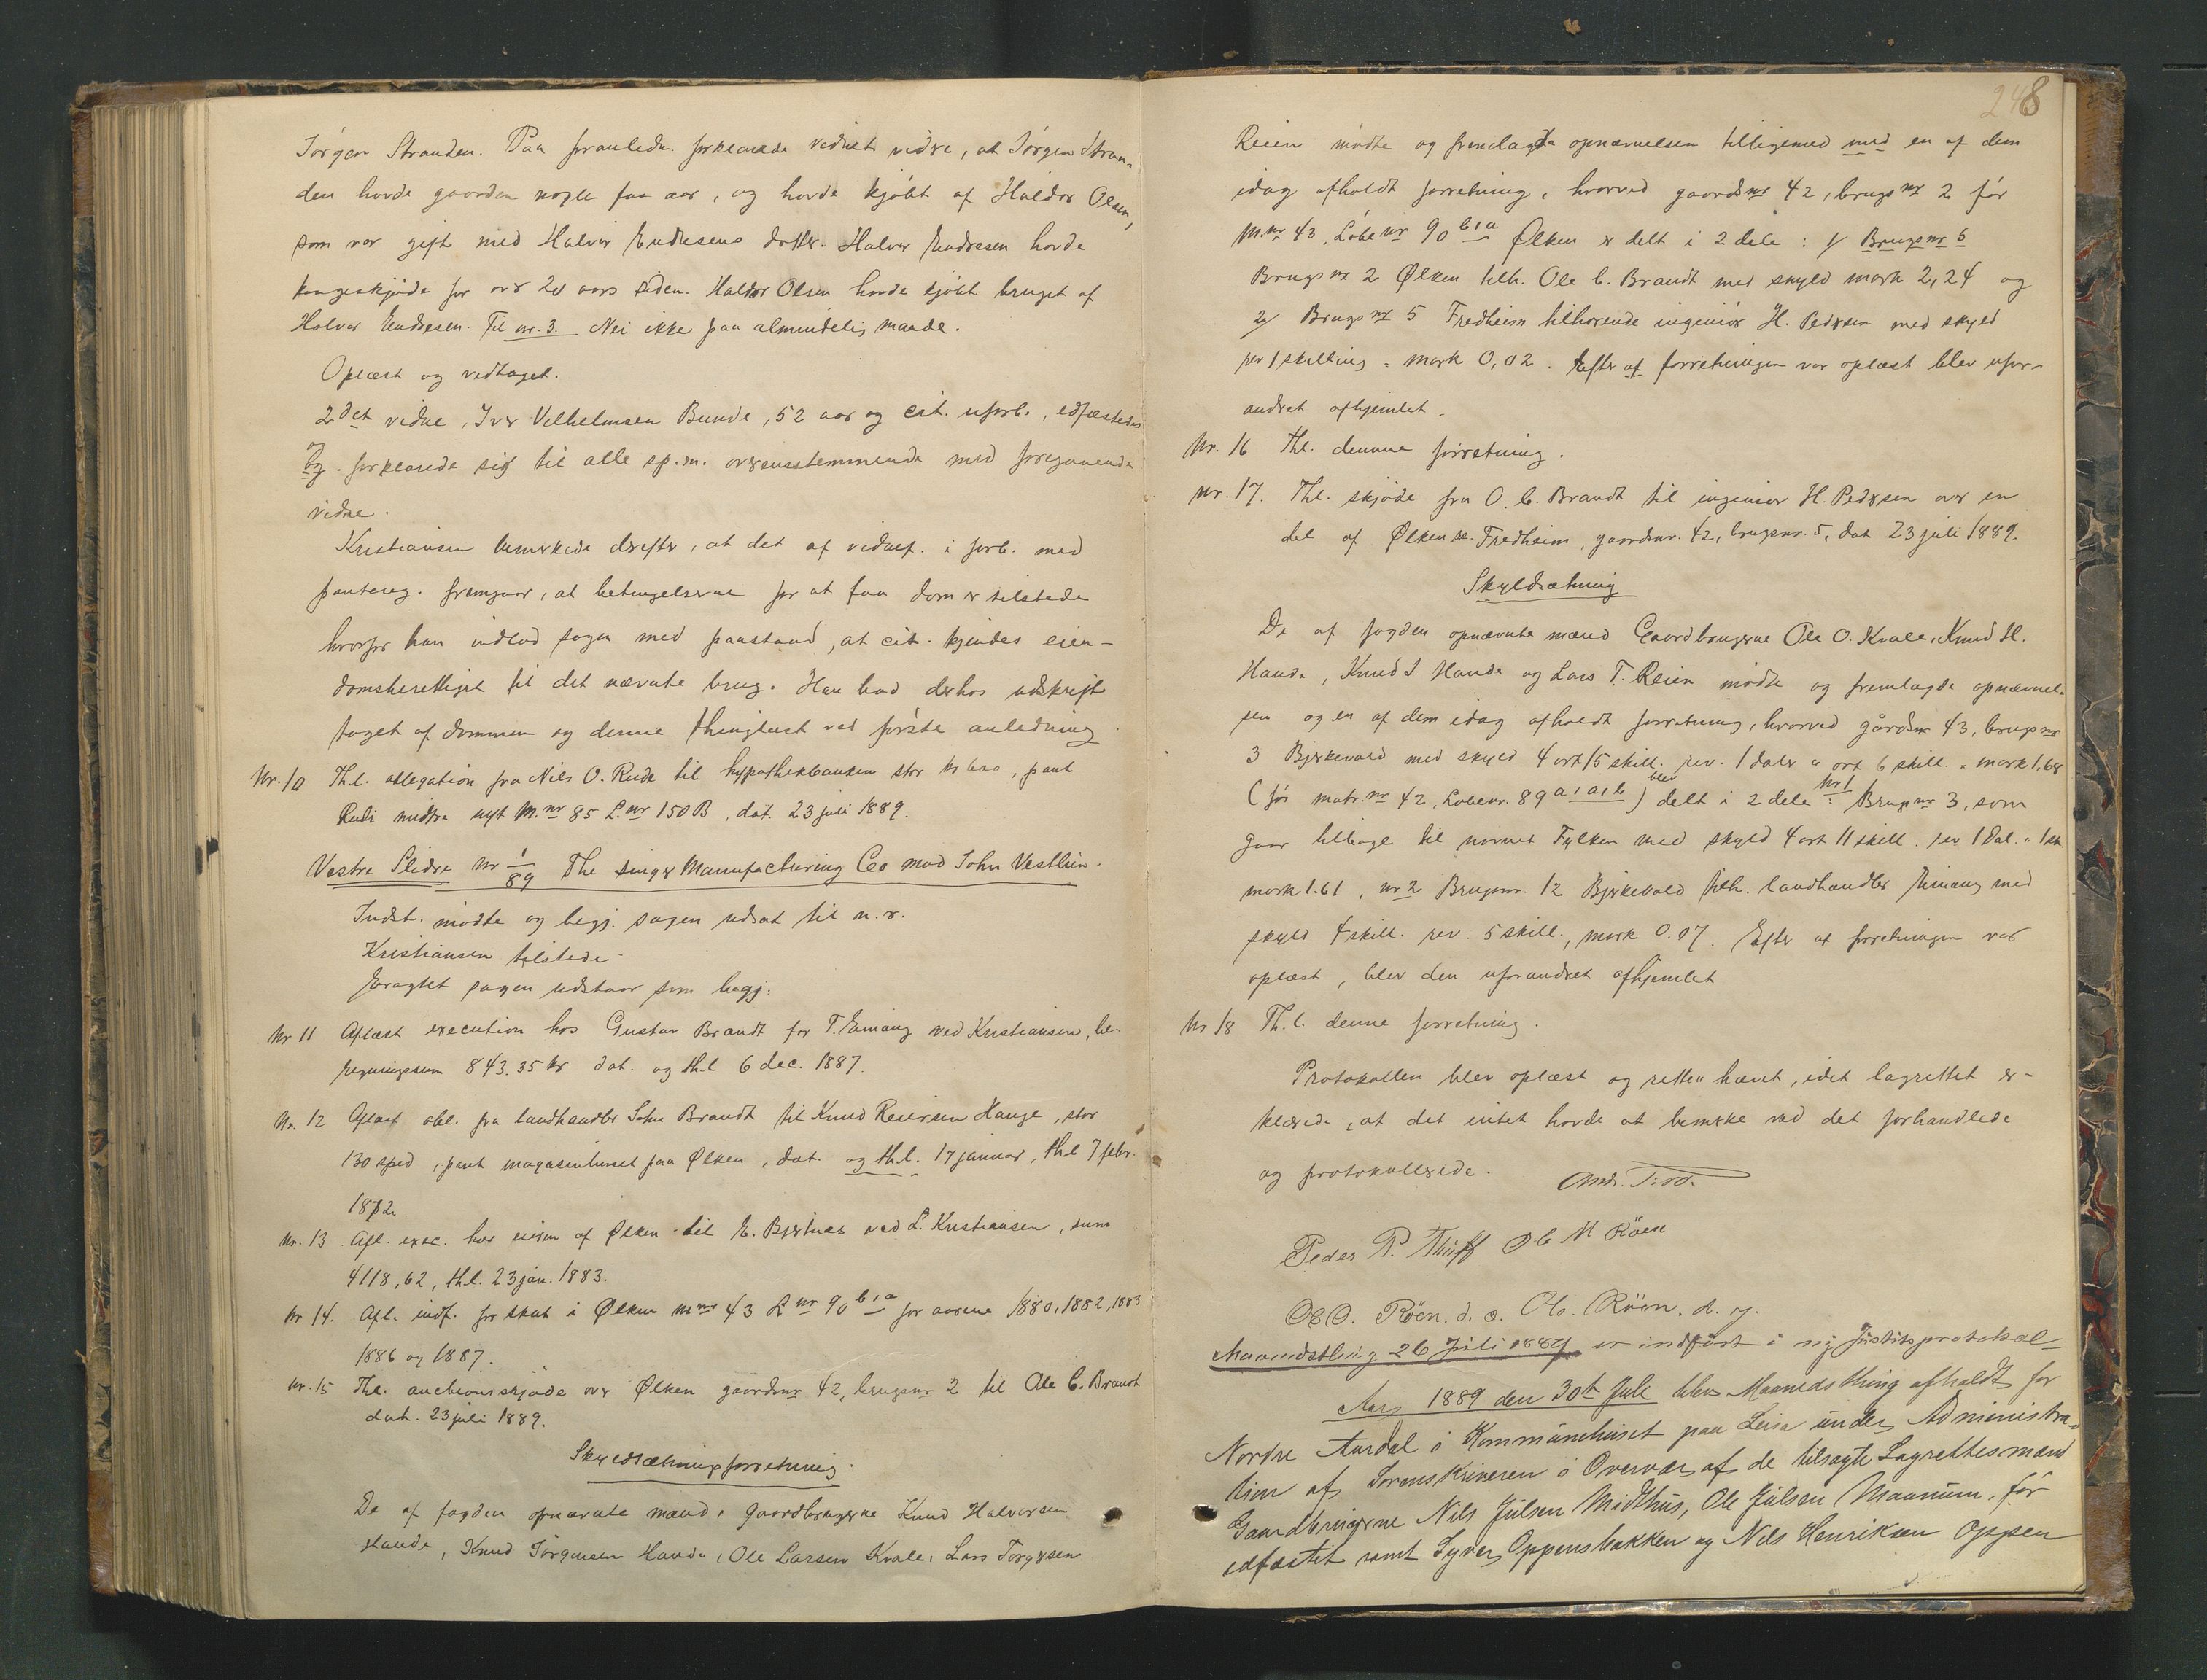 Jørgen Stranden. Paa foranledn. forklarede vidnet vidre, at Jørgen Stran-
den havde gaarden nogle faa aar, og havde kjøbt af Haldor Olsen,
som var gift med Halvor Endresens datter. Halvor Endresen havde
kongeskjøde for over 20 aars siden. Haldor Olsen havde kjøbt bruget af
Halvor Endresen. Til nr. 3. Nei ikke paa almindelig maade.
Oplæst og vedtaget.
2det vidne, Iver Vilhelmsen Bunde, 52 aar og cit. uforb., edfæstedes
og forklarede sig til alle sp.m. overensstemmende med foregaaende
vidne.
Kristiansen bemærkede derefter, at det af vidnef. i forb. med
pantereg. fremgaar, at betingelserne for at faa dom er tilstede
hvorfor han indlod sagen med paastand, at cit. kjendes eien-
domsberettiget til det nævnte brug. Han bad derhos udskrift
taget af dommen og denne thinglæst ved første anledning
Nr. 10 Thl. obligation fra Nils O. Rude til hypothekbanken stor kr 600, pant
Rudi nedre nyt M.nr 85 L.nr 150 B, dat. 23 juli 1889.
Vestre Slidre nr 1/89 The Singer Manufacturing Co mod John Vestlien.
Indst. mødte og begj. sagen udsat til n.r.
Kristiansen tilstede.
Eragtet sagen udstaar som begj.
Nr 11 Aflæst execution hos Gustav Brandt for T. Enang ved Kristiansen, be-
regningssum 843.35 kr dat. og thl 6 dec. 1887.
Nr. 12 Aflæst obl. fra landhandler John Brandt til Knud Reiersen Hauge, stor
130 spd, pant magasinhuset paa Ølken, dat. og thl. 17 januar, thl 7 febr.
1872
Nr. 13 Afl. exec. hos eieren af Ølken til E. Bjertnæs ved L. Kristiansen, sum
4118,62, thl. 23 jan. 1883.
Nr 14. Afl. indf. for skat i Ølken M nr 43 L nr 90 b,a for aarene 1880, 1882, 1883
1886 og 1887.
Nr. 15 Thl. auctionsskjøde over Ølken gaardsnr 42, brugsnr 2 til Ole C. Brandt
dat. 23 juli 1889.
Skyldsætningsforretning.
De af fogden opnævnte mænd, gaardbrugerne Knud Halvorsen
Hande, Knud Jørgensen Hande, Ole Larsen Kvale, Lars Torgersen
248
Reien mødte og fremlagde opnævnelsen tilligemed med en af dem
idag afholdt forretning, hvorved gaardsnr 42, brugsnr 2 før
M.nr 43, Løbenr 90 b,a Ølken er delt i 2 dele: 1/ Brugsnr 5
Brugsnr 2 Ølken tilh. Ole C. Brandt med skyld mark 2,24 og
2/ Brugsnr 5 Fredheim tilhørende ingeniør H. Pedersen med skyld
rev 1 skilling = mark 0,02. Efter at forretningen var oplæst blev ufor-
andret afhjemlet.
Nr. 16 Thl. denne forretning.
Nr. 17. Thl. skjøde fra O. C. Brandt til ingeniør H. Pedersen over en
del af Ølken Fredheim, gaardsnr. 42, brugsnr. 5, dat 23 juli 1889.
Skyldsætning
De af fogden opnævnte mænd Gaardbrugerne Ole O. Kvale, Knud H.
Hande, Knud J. Hande og Lars T. Reien mødte og fremlagde opnævnel-
sen og en af dem idag afholdt forretning, hvorved gårdsnr 43, brugsnr
3 Bjerkevold med skyld 4 ort 15 skill. rev. 1 daler " ort 6 skill. = mark 1.68
(før matr.nr 42, Løbenr. 89 a,a,b) blev delt i 2 dele: Nr 1 Brugsnr 3, som
gaar tilbage til navnet Fylken med skyld 4 ort 11 skill. rev 1 dal. " 1 sk.
mark 1.61, nr 2 Brugsnr. 12 Bjerkevold tilh. landhandler Enang med
skyld 4 skill. rev. 5 skill., mark 0.07. Efter at forretningen var
oplæst, blev den uforandret afhjemlet
Nr 18 Th.l. denne forretning.
Protokollen blev oplæst og retten hævet, idet lagrettet er-
klærede, at det intet havde at bemærke ved det forhandlede
og protokollerede.
Peder P. Ole M Röen
O. O. Röen. d. o. Ole. Röen. d. y.
Maanedsthing 26 Juli 1889 er indført i ny Justitsprotokol
Aar 1889 den 30te Juli blev Maanedsthing afholdt for
Nordre Aurdal i Kommunehuset paa Leira under Administra-
tion af Sorenskriveren i Overvær af de tilsagte Lagrettesmænd
Gaardbrugerne Nils Julsen Midthus, Ole Julsen Maanum, før
edfæstet samt Syver Oppensbakken og Nils Henriksen Oppen